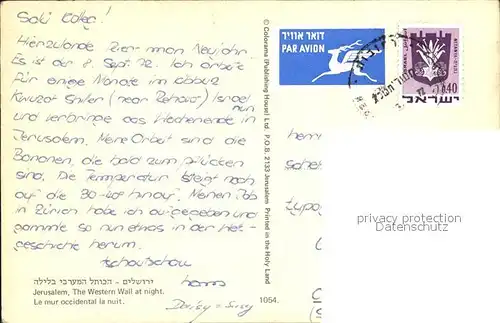 Sali Kolleg!
Hierzulande feiert man Neujahr
Es ist der 8. Sept. 72. Ich arbeite
für einige Monate im kibbuz
Kwuzat Shiler (near Rehovot) Israel
und verbringe das Wochenende in nun
Jerusalem. Meine Arbeit sind die
Bananen, die bald zum pflücken
sind. Die Temperatur steigt noch
auf die 30-40° hinauf. Meinen Job
in Zürich habe ich aufgegeben und
gammle so nun etwas in der Welt-
geschichte herum.
tschautschau
hans
Daisy + Susy
ירושלים - הכותל המערבי בלילה
Jerusalem, The Western Wall at night.
Le mur occidental la nuit.
1054.
© Colorama (Publishing House) Ltd. P.O.B. 2133 Jerusalem Printed in the Holy Land
דואר אוויר
PAR AVION
0.40
ישראל
privacy protection
Datenschutz